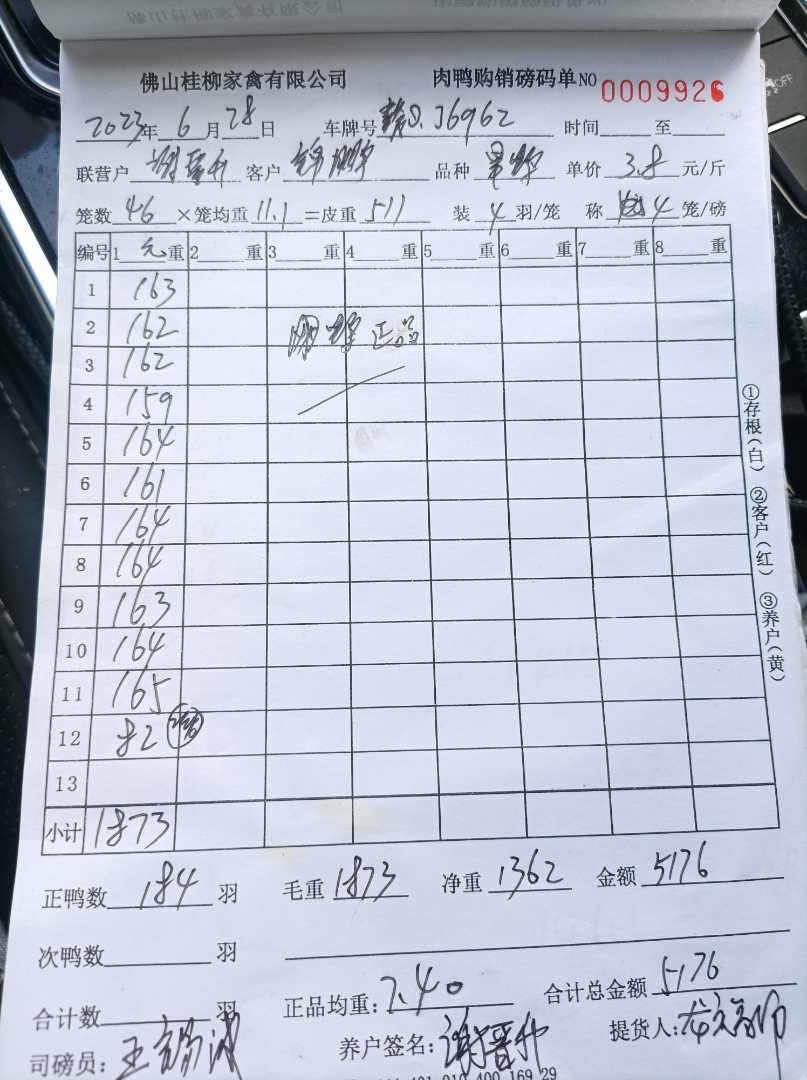 佛山桂柳家禽有限公司 肉鸭购销磅码单 NO 0009926
2023年 6 月 28 日 车牌号 J6962 时间 至
联营户 谢晋升 客户 品种 单价 3.8 元/斤
笼数 46 ×笼均重 11.1 =皮重 511 装 4 羽/笼 称 4 笼/磅
编号 1 元 重 2 重 3 重 4 重 5 重 6 重 7 重 8 重
1 163
2 162 正品
3 162
4 159
5 164
6 161
7 164
8 164
9 163
10 164
11 165
12 82
13
小计 1873
①存根(白) ②客户(红) ③养户(黄)
正鸭数 184 羽 毛重 1873 净重 1362 金额 5176
次鸭数 羽
合计数 羽 正品均重: 7.40 合计总金额 5176
司磅员: 王 养户签名: 谢晋升 提货人: